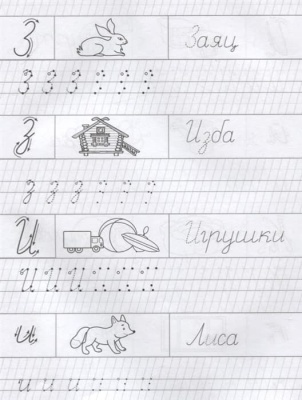 З Заяц
З З З
З Изба
з з з
И Игрушки
И И И
и Лиса
и и и